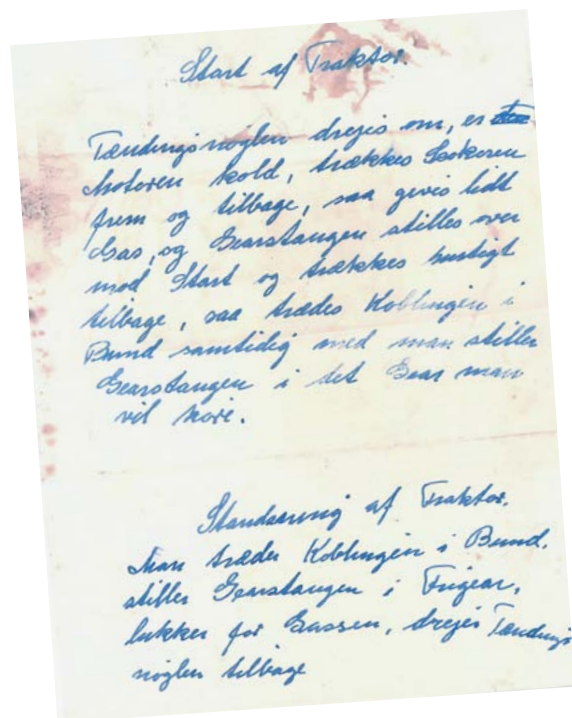 Start af Traktor.
Tændingsnøglen drejes om, er
Motoren kold, trækkes Chokeren
frem og tilbage, saa gives lidt
Gas, og Gearstangen stilles over
mod Start og trækkes hurtigt
tilbage, saa trædes Koblingen i
Bund samtidig med man stiller
Gearstangen i det Gear man
vil køre.
Standsning af Traktor.
Man træder Koblingen i Bund,
stiller Gearstangen i Frigear,
lukker for Gassen, drejer Tændings
nøglen tilbage